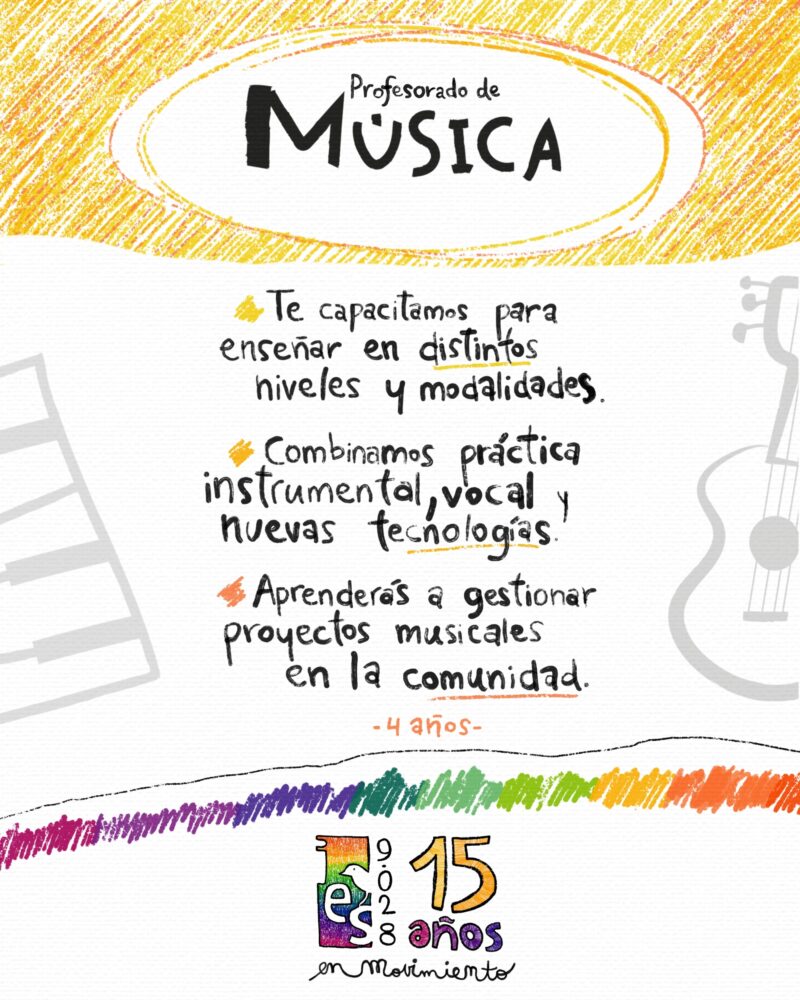 Profesorado de
MÚSICA
Te capacitamos para
enseñar en distintos
niveles y modalidades.
Combinamos práctica
instrumental, vocal y
nuevas tecnologías.
Aprenderás a gestionar
proyectos musicales
en la comunidad.
-4 años-
ies
9-028
15
años
en movimiento